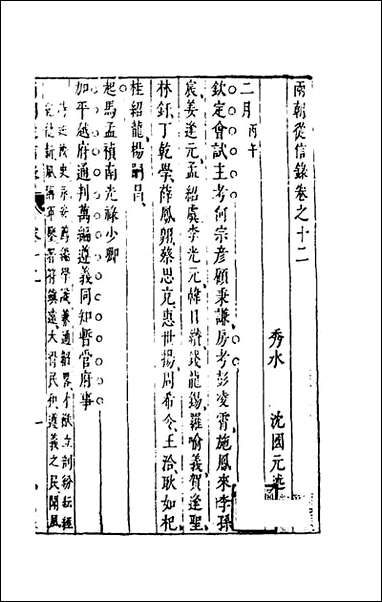 兩朝從信錄卷之十二
秀水 沈國元 述
二月 丙午
欽定會試主考何宗彥顧秉謙房考彭凌霄施鳳來李孫
宸姜逢元孟紹虞李光元韓日纘錢龍錫羅喻義賀逢聖
林釬丁乾學薛鳳翔蔡思充惠世揚周希令王洽耿如杞
桂紹龍揚嗣昌
起馬孟禎南光祿少卿
加平越府通判萬編遵義同知暫管府事
大得民和遵義之民聞風